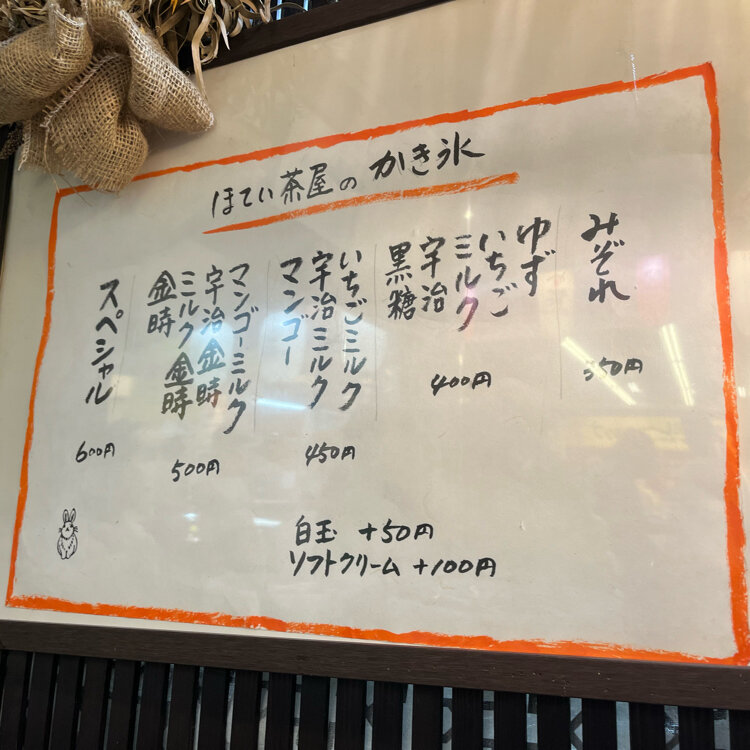 ほてい茶屋のかき氷
みぞれ
350円
ゆず
いちご
ミルク
宇治
黒糖
400円
いちごミルク
宇治ミルク
マンゴー
450円
マンゴーミルク
宇治金時
ミルク金時
金時
500円
スペシャル
600円
白玉 +50円
ソフトクリーム +100円